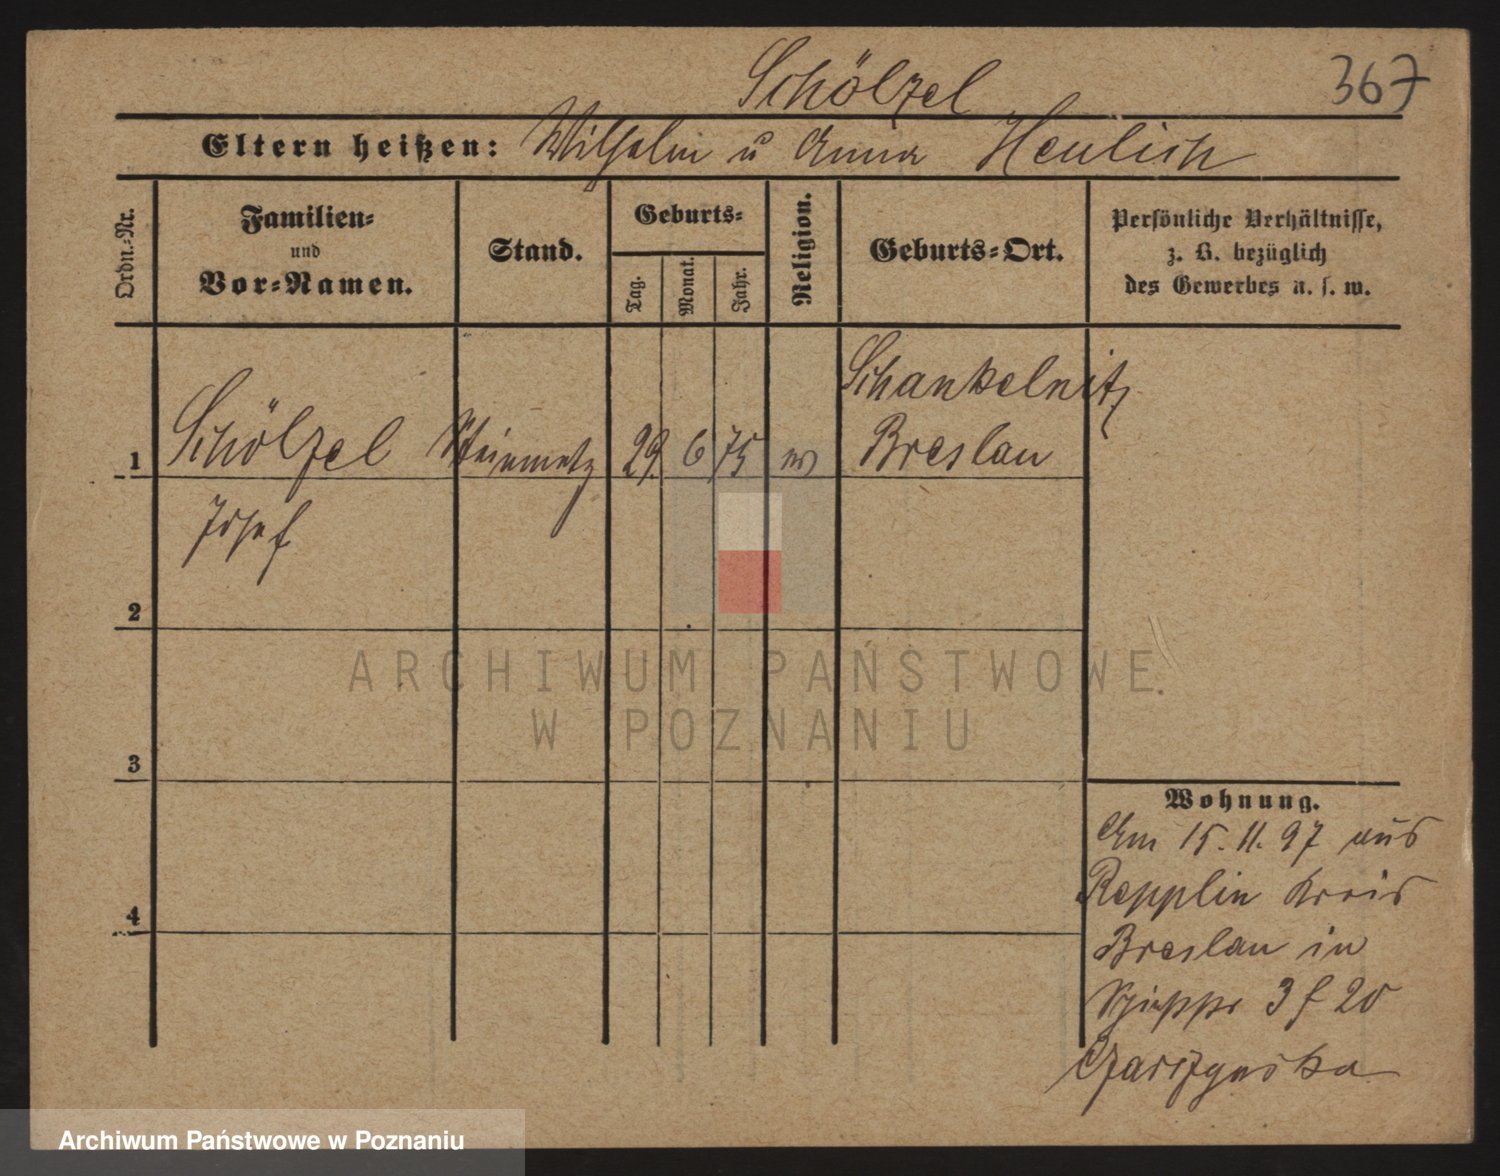 Schölzel
367
Eltern heißen: Wilhelm u Anna Heulich
Ordn.-Nr.
Familien-
und
Vor-Namen.
Stand.
Geburts-
Tag.
Monat.
Jahr.
Religion.
Geburts-Ort.
Persönliche Verhältnisse,
z. B. bezüglich
des Gewerbes u. s. w.
Schankelnitz
1 Schölzel Steinmetz 29. 6 75 Breslau
Josef
2
3
4
Wohnung.
Am 15. 11. 97 aus
Repplin Kreis
Breslau in
3 f 20
ARCHIWUM PAŃSTWOWE
W POZNANIU
Archiwum Państwowe w Poznaniu